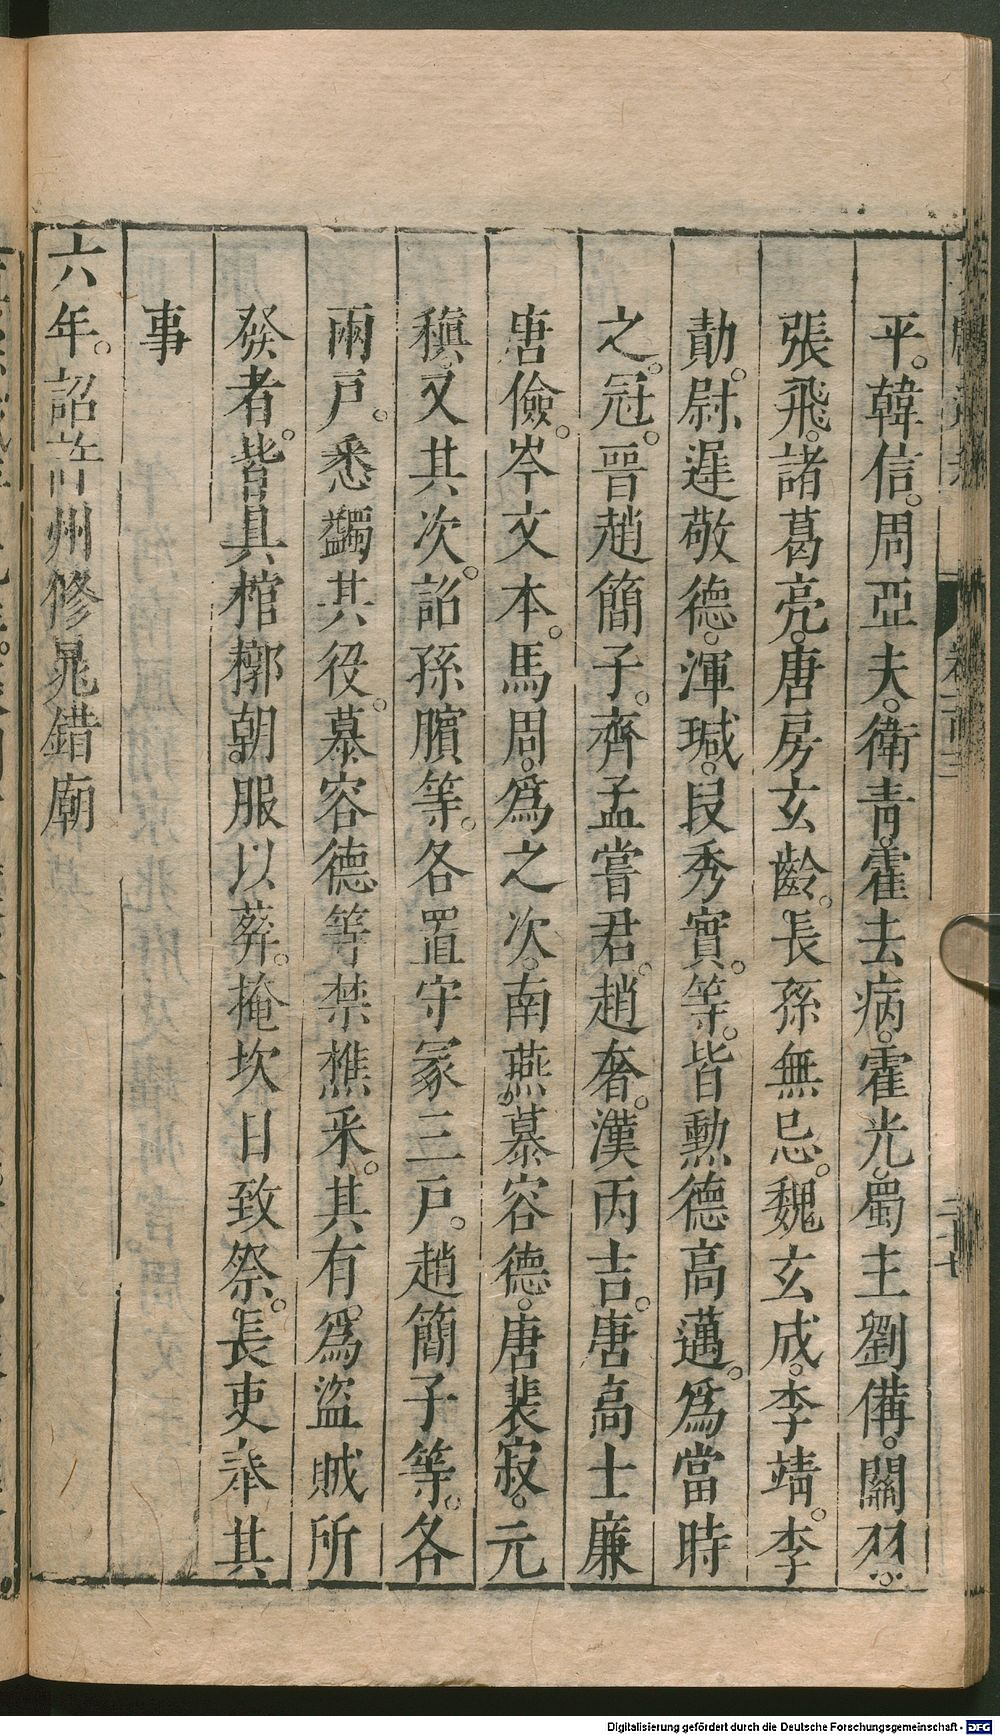 平。韓信。周亞夫。衛青。霍去病。霍光。蜀主劉備。關羽。
張飛。諸葛亮。唐房玄齡。長孫無忌。魏玄成。李靖。李
勣。尉遲敬德。渾瑊。叚秀實。等。皆勲德高邁。爲當時
之。冠。晉趙簡子。齊孟嘗君。趙奢。漢丙吉。唐高士廉
唐儉。岑文本。馬周。爲之次。南燕慕容德。唐裴寂。元
稹。又其次。詔孫臏等。各置守冢三戸。趙簡子等。各
兩戸。悉蠲其役。慕容德等禁樵采。其有。爲盗賊所
發者。皆具棺槨朝。服以葬。掩坎日致祭。長吏奉其
事
六年。詔許州修晁錯廟
Digitalisierung gefördert durch die Deutsche Forschungsgemeinschaft - DFG